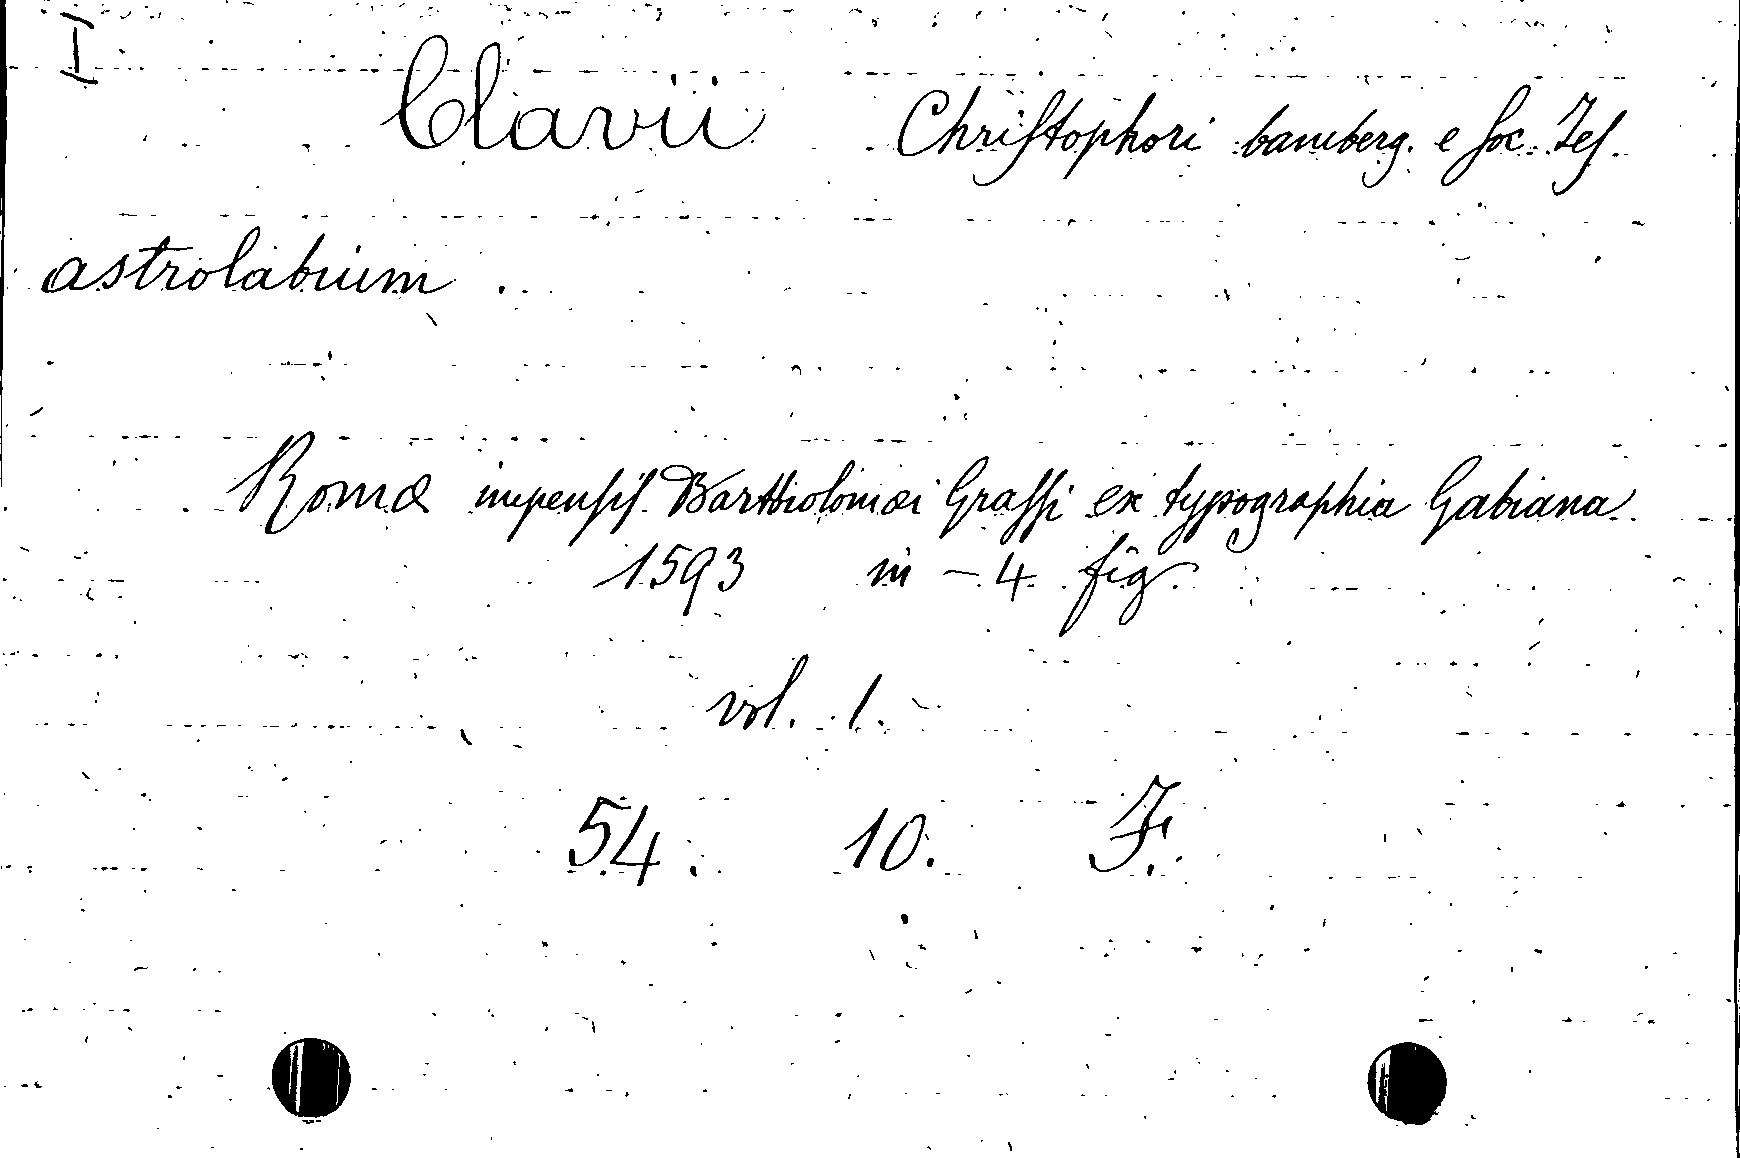 I
Clavii Chriſtophori bamberg. e Soc. Jeſ.
astrolabium ..
Romæ impenſiſ Bartholomæi Graſſi ex typographia Gabiana
1593 in - 4. fig.
vol. 1.
54. 10. F.